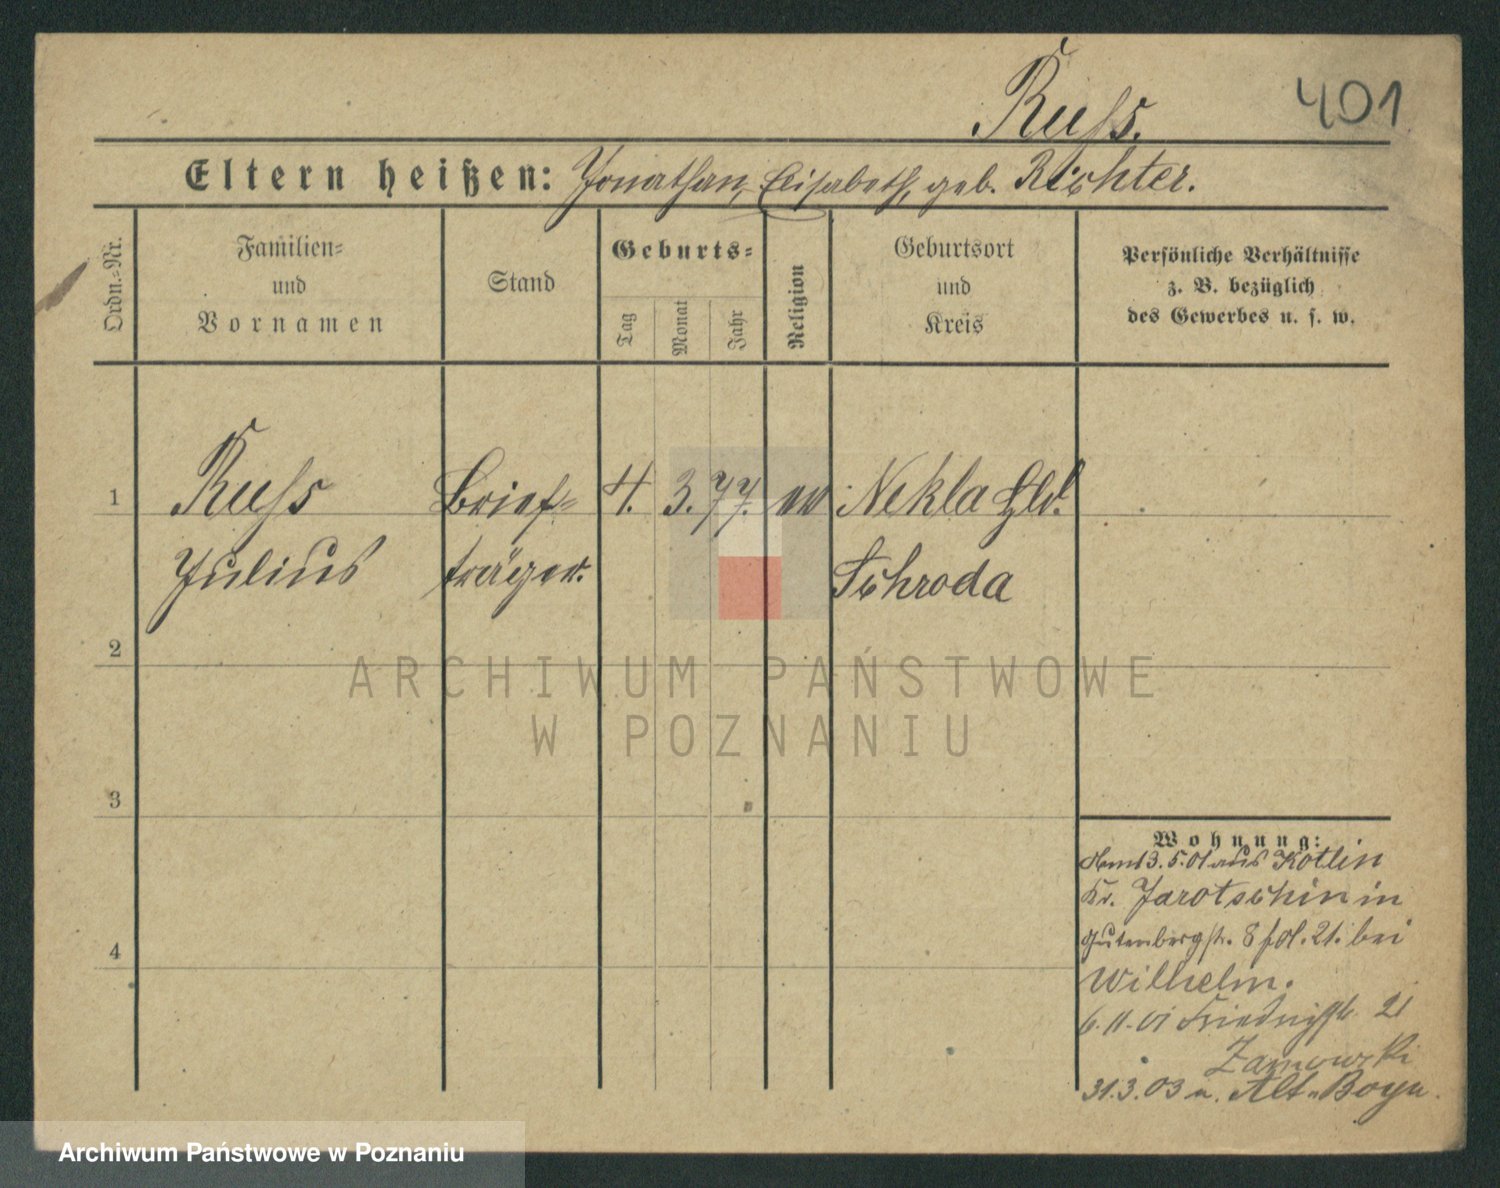 Russ.
401
Eltern heißen: Jonathan, Elisabeth, geb. Richter.
Ordn.-Nr.
Familien-
und
Vornamen
Stand
Geburts-
Tag
Monat
Jahr
Religion
Geburtsort
und
Kreis
Persönliche Verhältnisse
z. B. bezüglich
des Gewerbes u. s. w.
1 Russ Brief- 4. 3. 77. ev Nekla Hld.
Julius träger. Schroda
2
3
4
Wohnung:
3.5.01 aus Kotlin
Kr. Jarotschin in
Gutenbergstr. 8 fol. 21. bei
Wilhelm.
6.11.01 21
31.3.03 n. Alt-Boyn.
ARCHIWUM PAŃSTWOWE
W POZNANIU
Archiwum Państwowe w Poznaniu